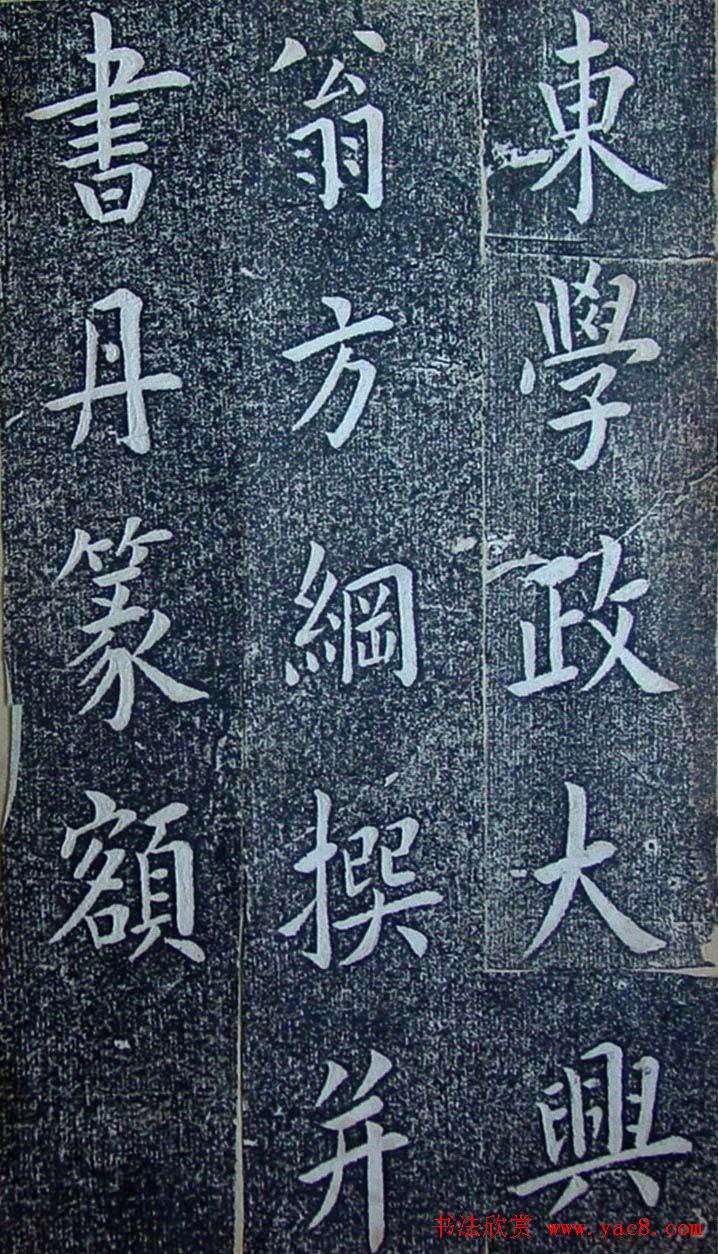 東學政大興
翁方綱撰并
書丹篆額
书法欣赏 www.yac8.com